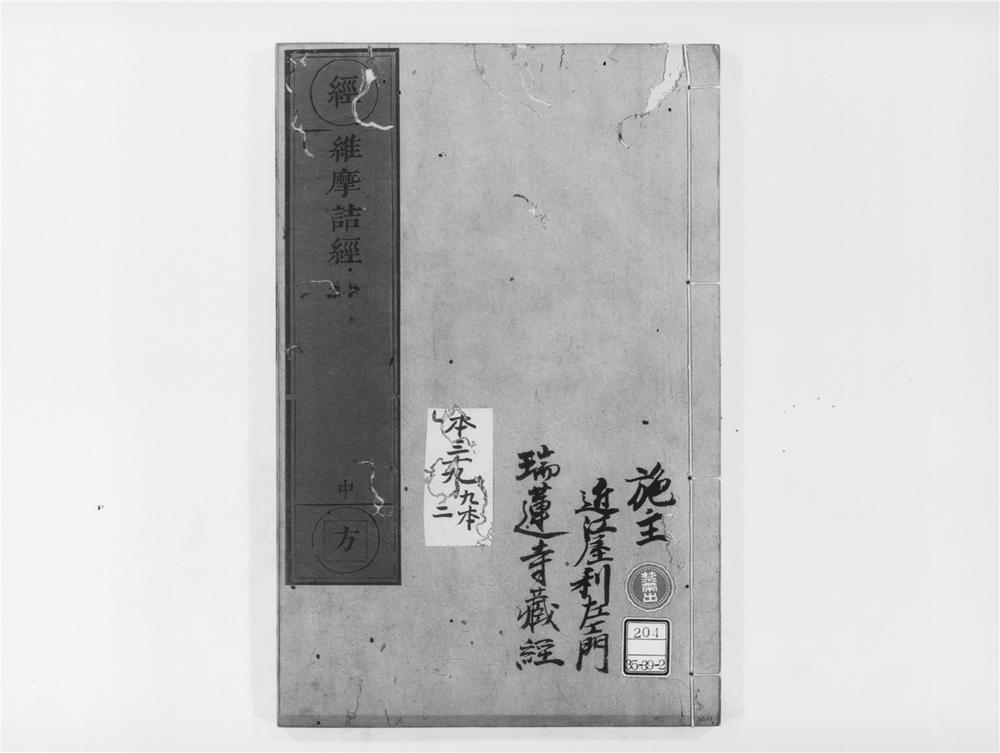 施主
近江屋利左衛門
瑞蓮寺藏経
禁帶出
204
35-39-2
本三九
九本
二
經
維摩詰經
中
方